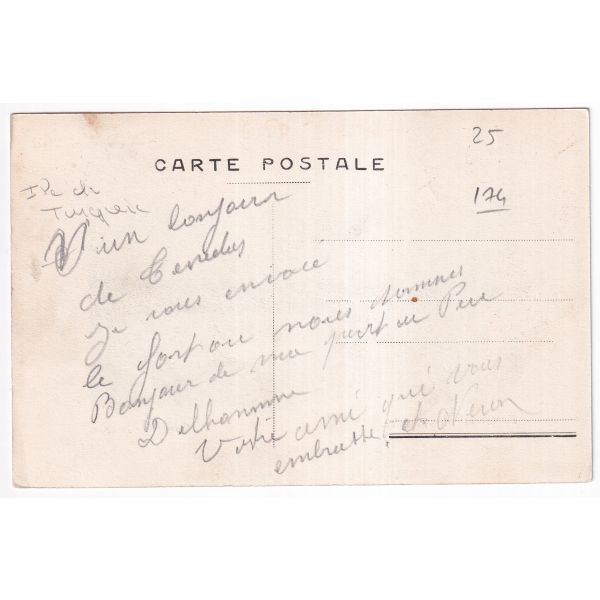 25
CARTE POSTALE
174
Ile de
Turquie
Un bonjour
de Tenedos
je vous envoie
le fort ou nous sommes
Bonjour de ma part au Pere
Delhomme
Votre ami qui vous
embrasse